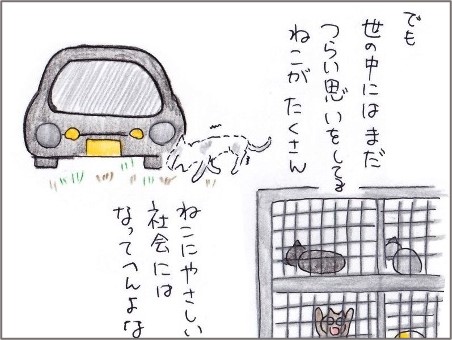 でも
世の中にはまだ
つらい思いをしてる
ねこが たくさん
ねこにやさしい
社会には
なってへんよな